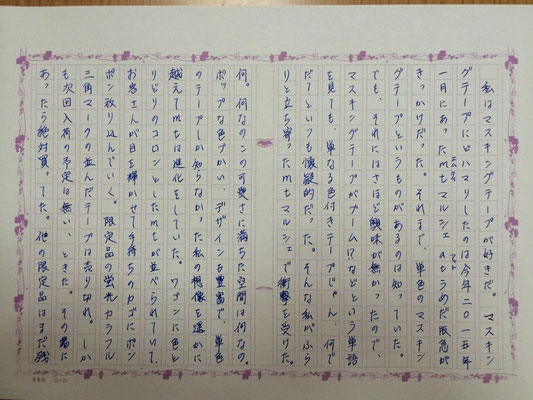 私はマスキングテープが好きだ。マスキン
グテープにどハマりしたのは今年二〇一五年
一月にあったmtマルシェ atうめだ阪急が
きっかけだった。それまで、単色のマスキン
グテープというものがあるのは知っていた。
でも、それにはさほど興味が無かったので、
マスキングテープがブーム!?などという単語
を見ても、単なる色付きテープじゃん、何で
だ?といつも懐疑的だった。そんな私がふら
りと立ち寄ったmtマルシェで衝撃を受けた。
何。何なのこの可愛さに満ちた空間は何なの。
ポップな色づかい、デザインも豊富で、単色
のテープしか知らなかった私の想像を遥かに
越えてmtは進化をしていた。ワゴンに色と
りどりのコロンとしたmtが並べられていて、
お客さんが目を輝かせて手持ちのカゴにポン
ポン放り込んでいく。限定品の蛍光カラフル
三角マークの並んだテープは売り切れ。しか
も次回入荷の予定は無い、ときた。その場に
あったら絶対買ってた。他の限定品はまだ残